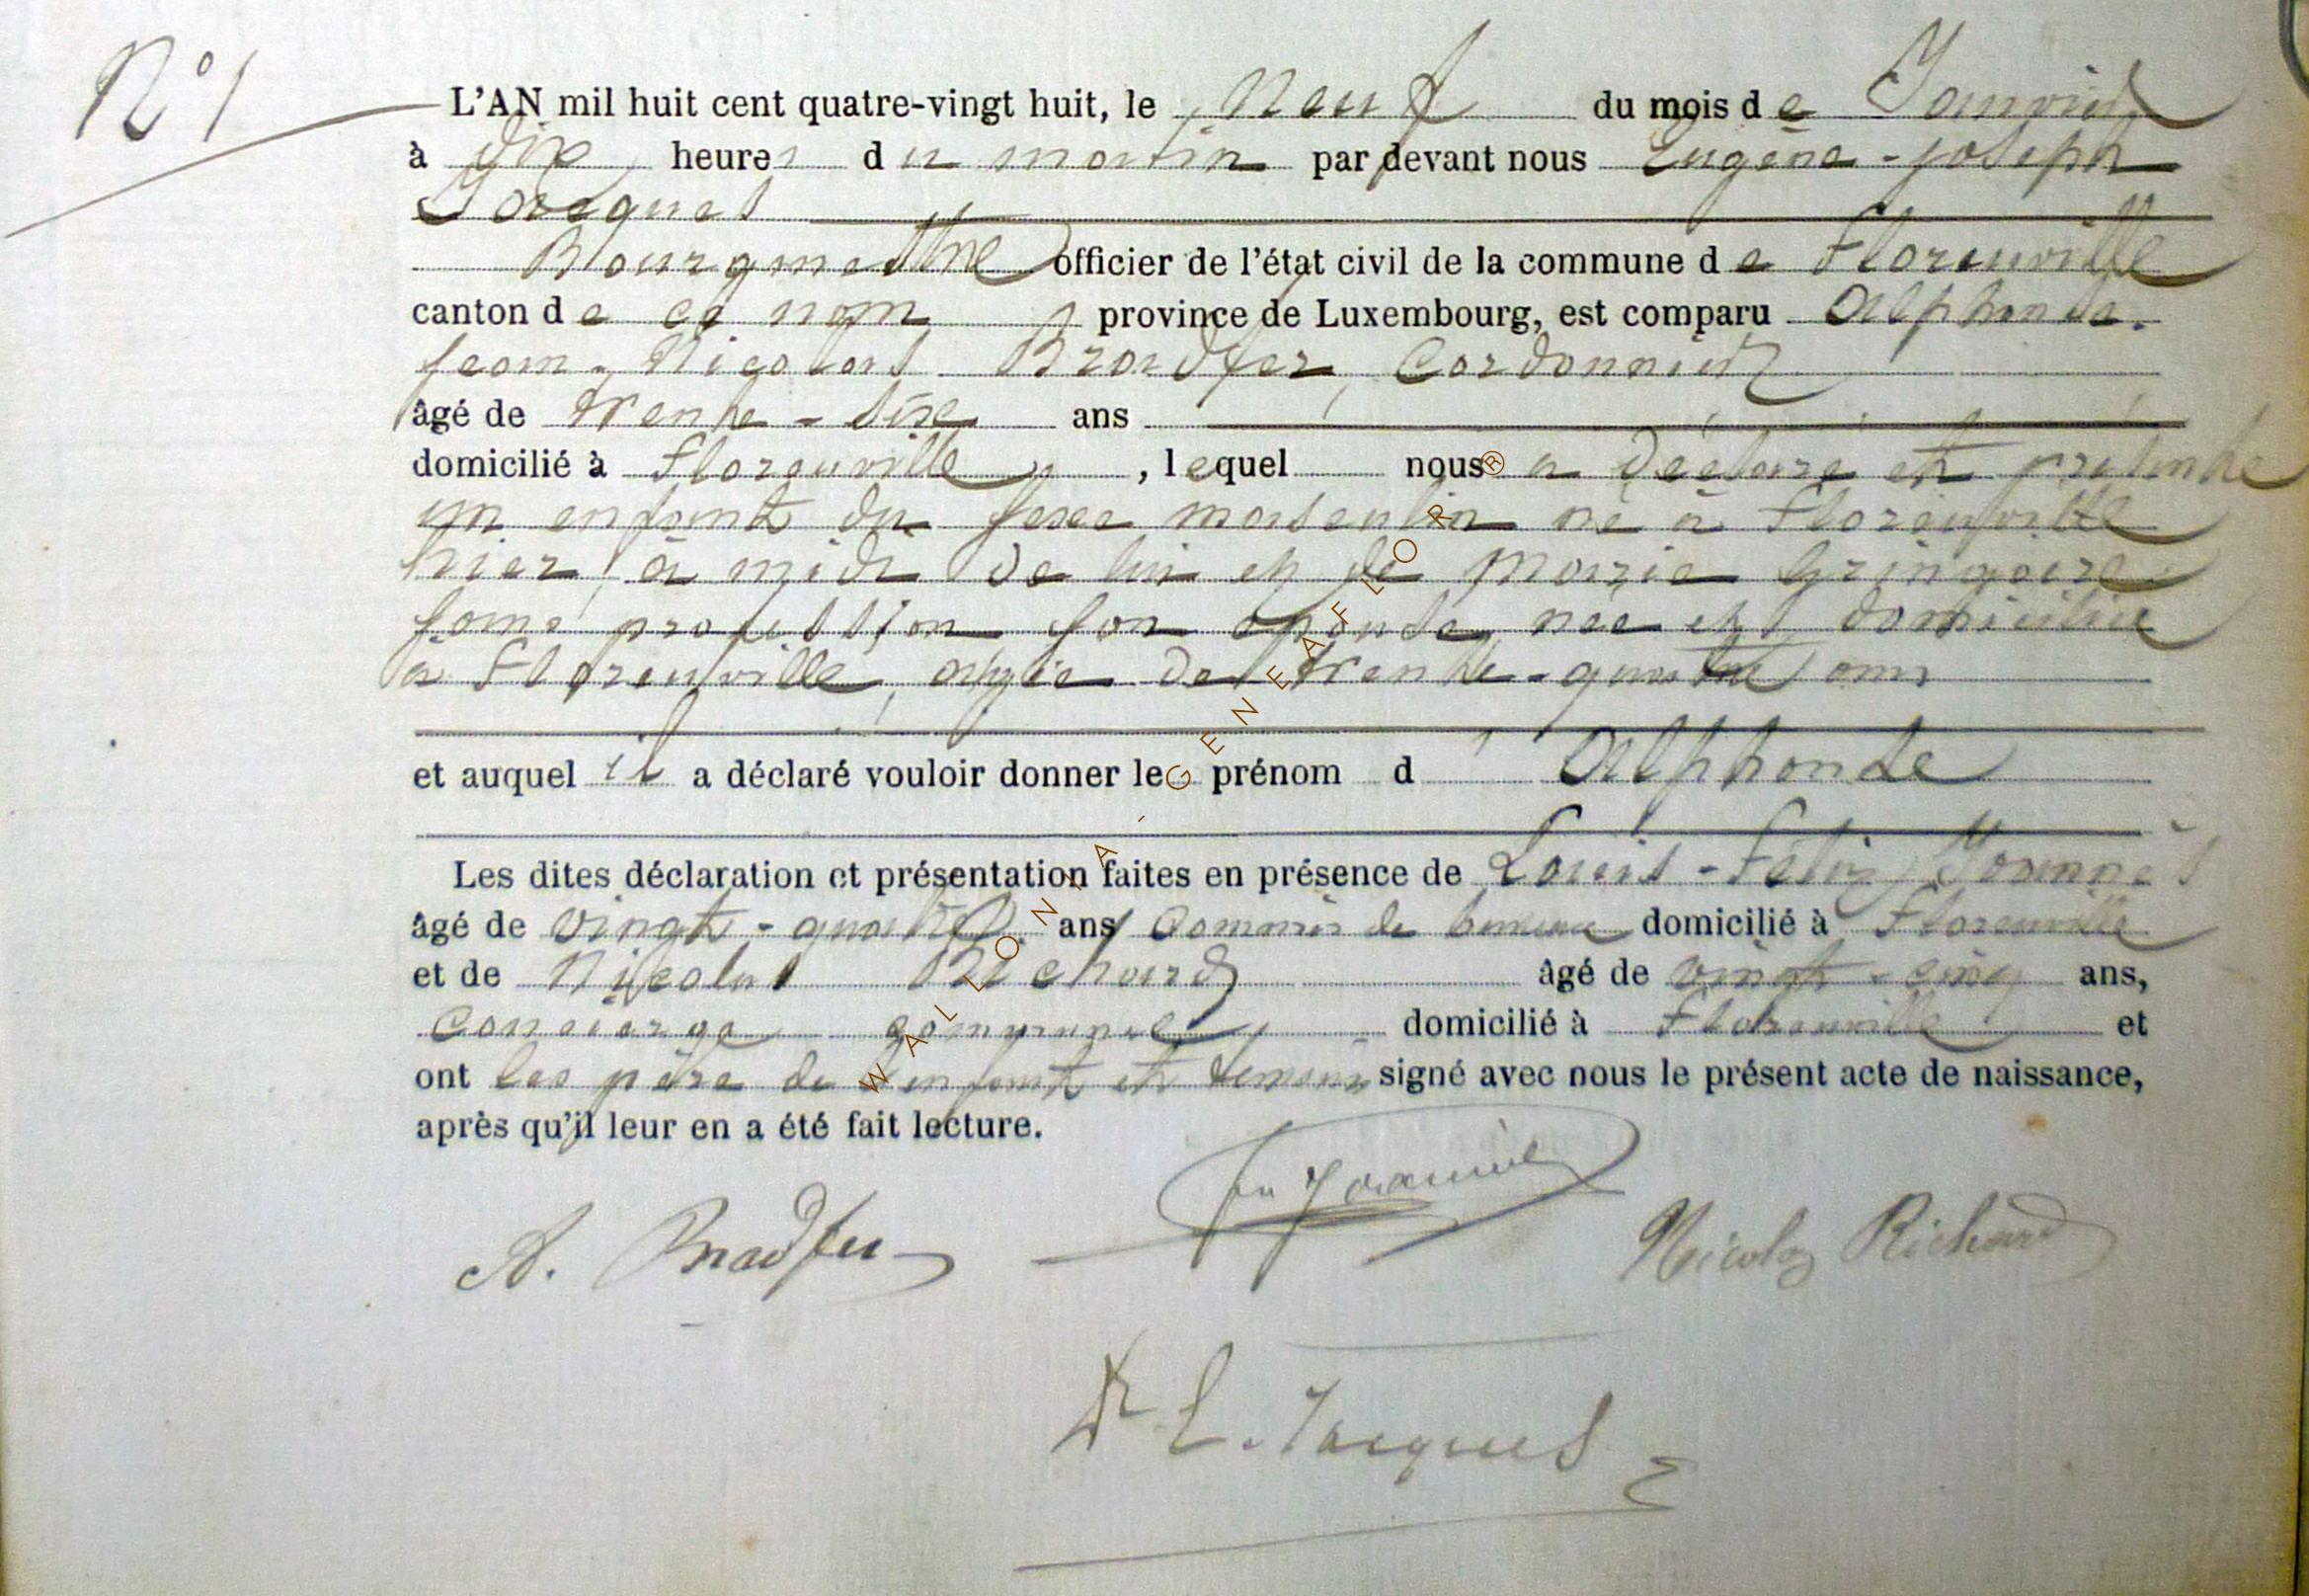 N° 1
L'AN mil huit cent quatre-vingt huit, le Neuf du mois de Janvier
à dix heures du matin par devant nous Eugène-Joseph
Jacques
Bourgmestre officier de l'état civil de la commune de Florenville
canton de ce nom province de Luxembourg, est comparu Alphonse
Jean-Nicolas Bradfer, Cordonnier
âgé de trente-six ans
domicilié à Florenville, lequel nous a déclaré et présenté
un enfant du sexe masculin né à Florenville
hier, à midi de lui et de Marie Gringoire
sans profession son épouse, née et domiciliée
à Florenville, âgée de trente-quatre ans
et auquel il a déclaré vouloir donner le prénom d'Alphonse
Les dites déclaration et présentation faites en présence de Louis-Félix
âgé de vingt-quatre ans, Commis de bureau domicilié à Florenville
et de Nicolas Richard âgé de vingt-cinq ans,
Concierge communal, domicilié à Florenville et
ont les père de l'enfant et témoins signé avec nous le présent acte de naissance,
après qu'il leur en a été fait lecture.
A. Bradfer
Nicolas Richard
Dr E. Jacques
WALLONIA - GENEAFLOR®